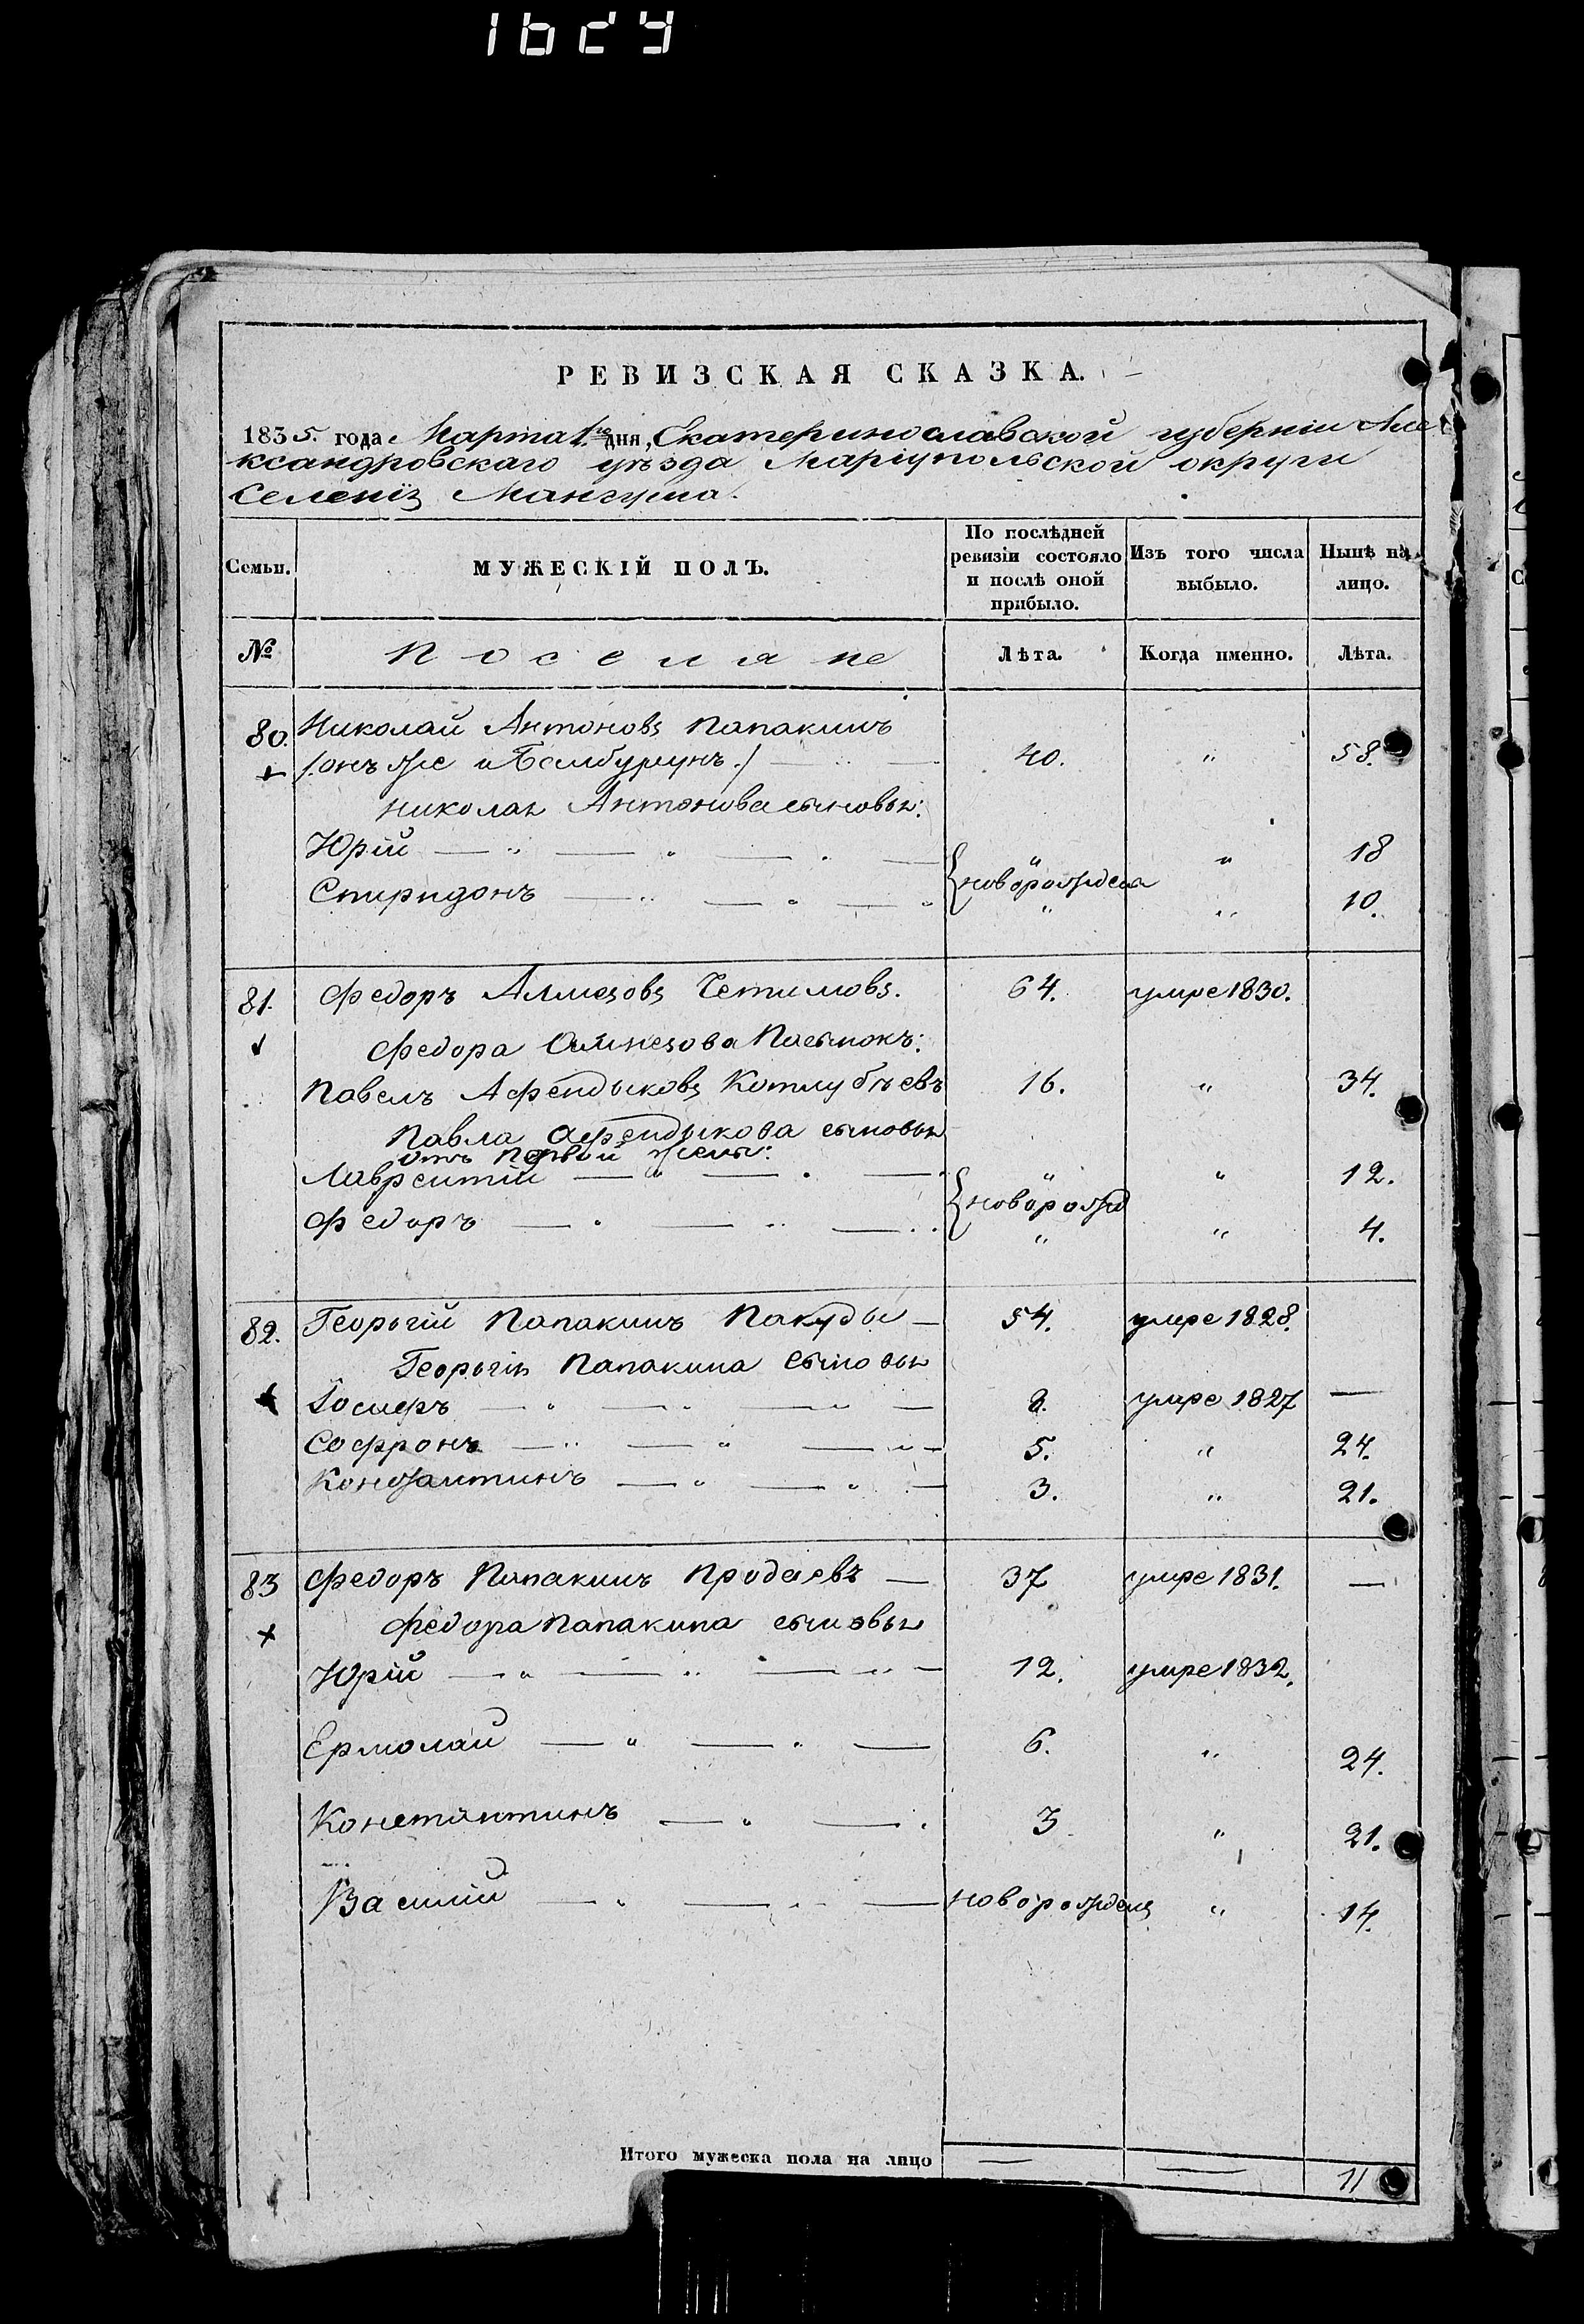 РЕВИЗСКАЯ СКАЗКА.
1835. года Марта 1го дня, Екатеринославской губерніи Але
ксандровскаго уѣзда Маріупольской округи
Селенія Мангуша.
Семьи. МУЖЕСКІЙ ПОЛЪ. По послѣдней ревизіи состояло и послѣ оной прибыло. Изъ того числа выбыло. Нынѣ на лицо.
№ Поселяне Лѣта. Когда именно. Лѣта.
80. Николай Антоновъ Папакинъ
/онъ же и Балбурунъ./ 40. " 58.
Николая Антонова сыновья:
Юрій " 18
новорожден
Спиридонъ " 10.
81. Федоръ Четимовъ. 64. умре 1830.
Федора Пасынокъ:
Павелъ Афендыковъ Котлубѣевъ 16. " 34.
Павла Афендыкова сыновья
отъ первой жены:
Лаврентій " 12.
новорожд
Федоръ " 4.
82. Георьгій Папакинъ Пакуды 54. умре 1828.
Георьгія Папакина сыновья
Іосифъ умре 1827 —
Софронъ 5. " 24.
Константинъ 3. " 21.
83 Федоръ Папакинъ Продаевъ 37 умре 1831. —
Федора Папакина сыновья
Юрій 12. умре 1832.
Ермолай 6. " 24.
Константинъ 3 " 21.
Василій новорожден " 14.
Итого мужеска пола на лицо — — 11